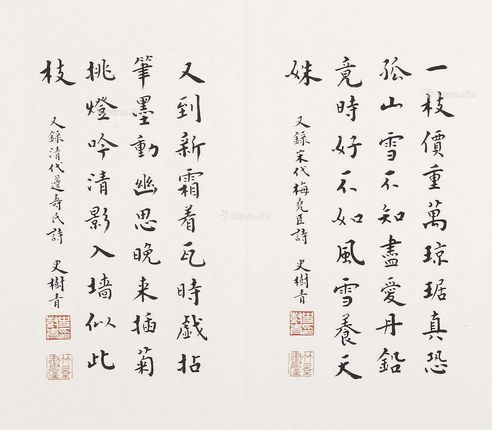 一枝價重萬瓊琚真恐
孤山雪不知盡愛丹鉛
竟時好不如風雪養天
姝
又錄宋代梅堯臣詩 史樹青
又到新霜着瓦時戲拈
筆墨動幽思晚来插菊
挑燈吟清影入墙似此
枝
又錄清代邊壽民詩 史樹青